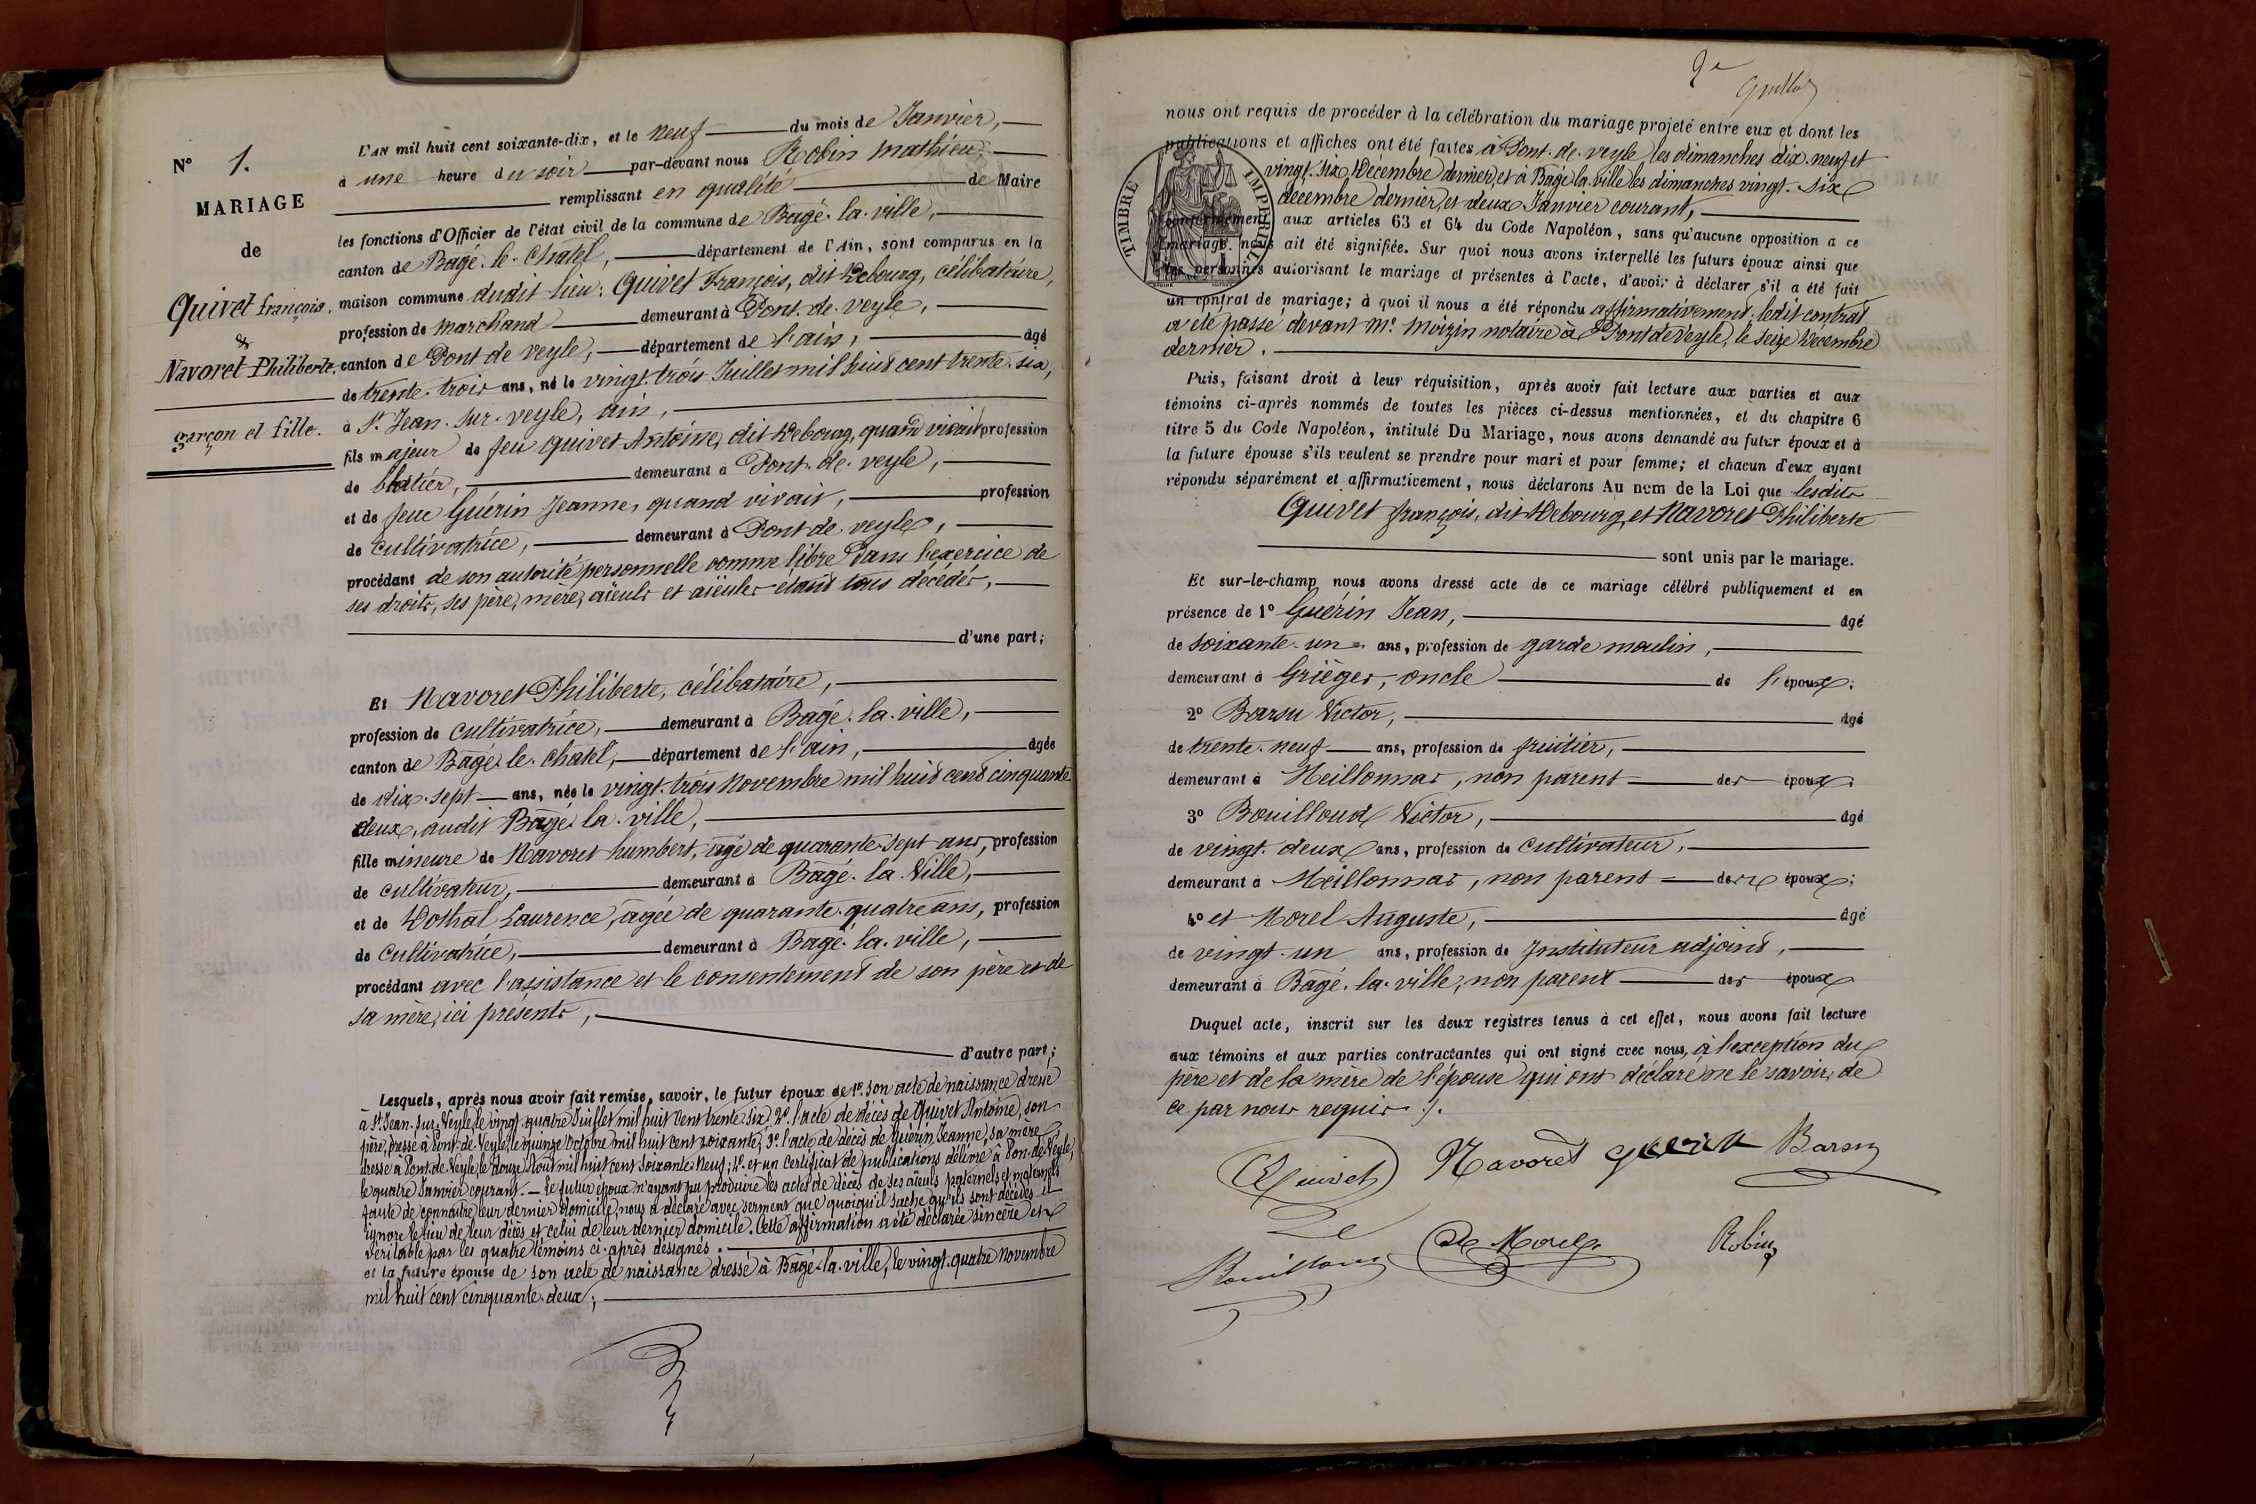 N° 1.
MARIAGE
de
Quivet françois.
&
Navoret Philiberte.
garçon et fille.
L'AN mil huit cent soixante-dix, et le neuf du mois de Janvier,
à une heure du soir par-devant nous Robin Mathieu,
remplissant en qualité de Maire
les fonctions d'Officier de l'état civil de la commune de Bagé-la-ville,
canton de Bagé-le-Chatel, département de l'Ain, sont comparus en la
maison commune dudit lieu: Quivet François, dit Debourg, célibataire,
profession de marchand demeurant à Pont-de-veyle,
canton de Pont de veyle, département de l'ain, âgé
de trente-trois ans, né le vingt-trois Juillet mil huit cent trente-six,
à St Jean-sur-veyle, ain,
fils majeur de feu quivet Antoine, dit Debourg, quand vivait profession
de blatier, demeurant à Pont-de-veyle,
et de feue Guérin Jeanne, quand vivait, profession
de cultivatrice, demeurant à Pont-de-veyle,
procédant de son autorité personnelle comme libre dans l'exercice de
ses droits, ses père, mère, aïeuls et aïeules étant tous décédés,
d'une part;
Et Navoret Philiberte, célibataire,
profession de cultivatrice, demeurant à Bagé-la-ville,
canton de Bagé-le-Chatel, département de l'ain, âgée
de dix-sept ans, née le vingt-trois Novembre mil huit cent cinquante
deux, audit Bagé-la-ville,
fille mineure de Navoret humbert, âgé de quarante-sept ans, profession
de cultivateur, demeurant à Bagé-la-Ville,
et de Dothal Laurence, âgée de quarante-quatre ans, profession
de cultivatrice, demeurant à Bagé-la-ville,
procédant avec l'assistance et le consentement de son père et de
sa mère, ici présents,
d'autre part;
Lesquels, après nous avoir fait remise, savoir, le futur époux de 1° son acte de naissance dressé
à St Jean-sur-Veyle, le vingt-quatre Juillet mil huit cent trente-six; 2° l'acte de décès de Quivet Antoine, son
père, dressé à Pont-de-Veyle, le quinze Octobre mil huit cent soixante; 3° l'acte de décès de Guérin Jeanne, sa mère,
dressé à Pont-de-Veyle, le douze Août mil huit cent soixante-neuf; 4° et un certificat de publications délivré à Pont-de-Veyle,
le quatre Janvier courant. — Le futur époux n'ayant pu produire les actes de décès de ses aïeuls paternels et maternels
faute de connaître leur dernier domicile, nous a déclaré avec serment que quoiqu'il sache qu'ils sont décédés il
ignore le lieu de leur décès et celui de leur dernier domicile. Cette affirmation a été déclarée sincère et
véritable par les quatre témoins ci-après désignés.
et la future épouse de son acte de naissance dressé à Bagé-la-ville, le vingt-quatre novembre
mil huit cent cinquante-deux;
2e
nous ont requis de procéder à la célébration du mariage projeté entre eux et dont les
publications et affiches ont été faites à Pont-de-veyle les dimanches dix-neuf et
vingt-six Décembre dernier, et à Bagé-la-ville les dimanches vingt-six
décembre dernier, et deux Janvier courant,
conformément aux articles 63 et 64 du Code Napoléon, sans qu'aucune opposition à ce
mariage nous ait été signifiée. Sur quoi nous avons interpellé les futurs époux ainsi que
les personnes autorisant le mariage et présentes à l'acte, d'avoir à déclarer s'il a été fait
un contrat de mariage; à quoi il nous a été répondu affirmativement; ledit contrat
a été passé devant Me Moizin notaire à Pont de Veyle, le seize Décembre
dernier.
TIMBRE IMPÉRIAL
Puis, faisant droit à leur réquisition, après avoir fait lecture aux parties et aux
témoins ci-après nommés de toutes les pièces ci-dessus mentionnées, et du chapitre 6
titre 5 du Code Napoléon, intitulé Du Mariage, nous avons demandé au futur époux et à
la future épouse s'ils veulent se prendre pour mari et pour femme; et chacun d'eux ayant
répondu séparément et affirmativement, nous déclarons Au nom de la Loi que lesdits
Quivet françois, dit Debourg, et Navoret Philiberte
sont unis par le mariage.
Et sur-le-champ nous avons dressé acte de ce mariage célébré publiquement et en
présence de 1° Guérin Jean, âgé
de soixante-un ans, profession de garde moulin,
demeurant à Grièges, oncle de l'époux;
2° Barsu Victor, âgé
de trente-neuf ans, profession de fruitier,
demeurant à Meillonnas, non parent des époux;
3° Bouilloud Victor, âgé
de vingt-deux ans, profession de cultivateur,
demeurant à Meillonnas, non parent des époux;
4° et Morel Auguste, âgé
de vingt-un ans, profession de Instituteur adjoint,
demeurant à Bagé-la-ville, non parent des époux
Duquel acte, inscrit sur les deux registres tenus à cet effet, nous avons fait lecture
aux témoins et aux parties contractantes qui ont signé avec nous, à l'exception du
père et de la mère de l'épouse qui ont déclaré ne le savoir, de
ce par nous requis ./.
Quivet Navoret guérin Barsu
Bouilloud Morel Robin